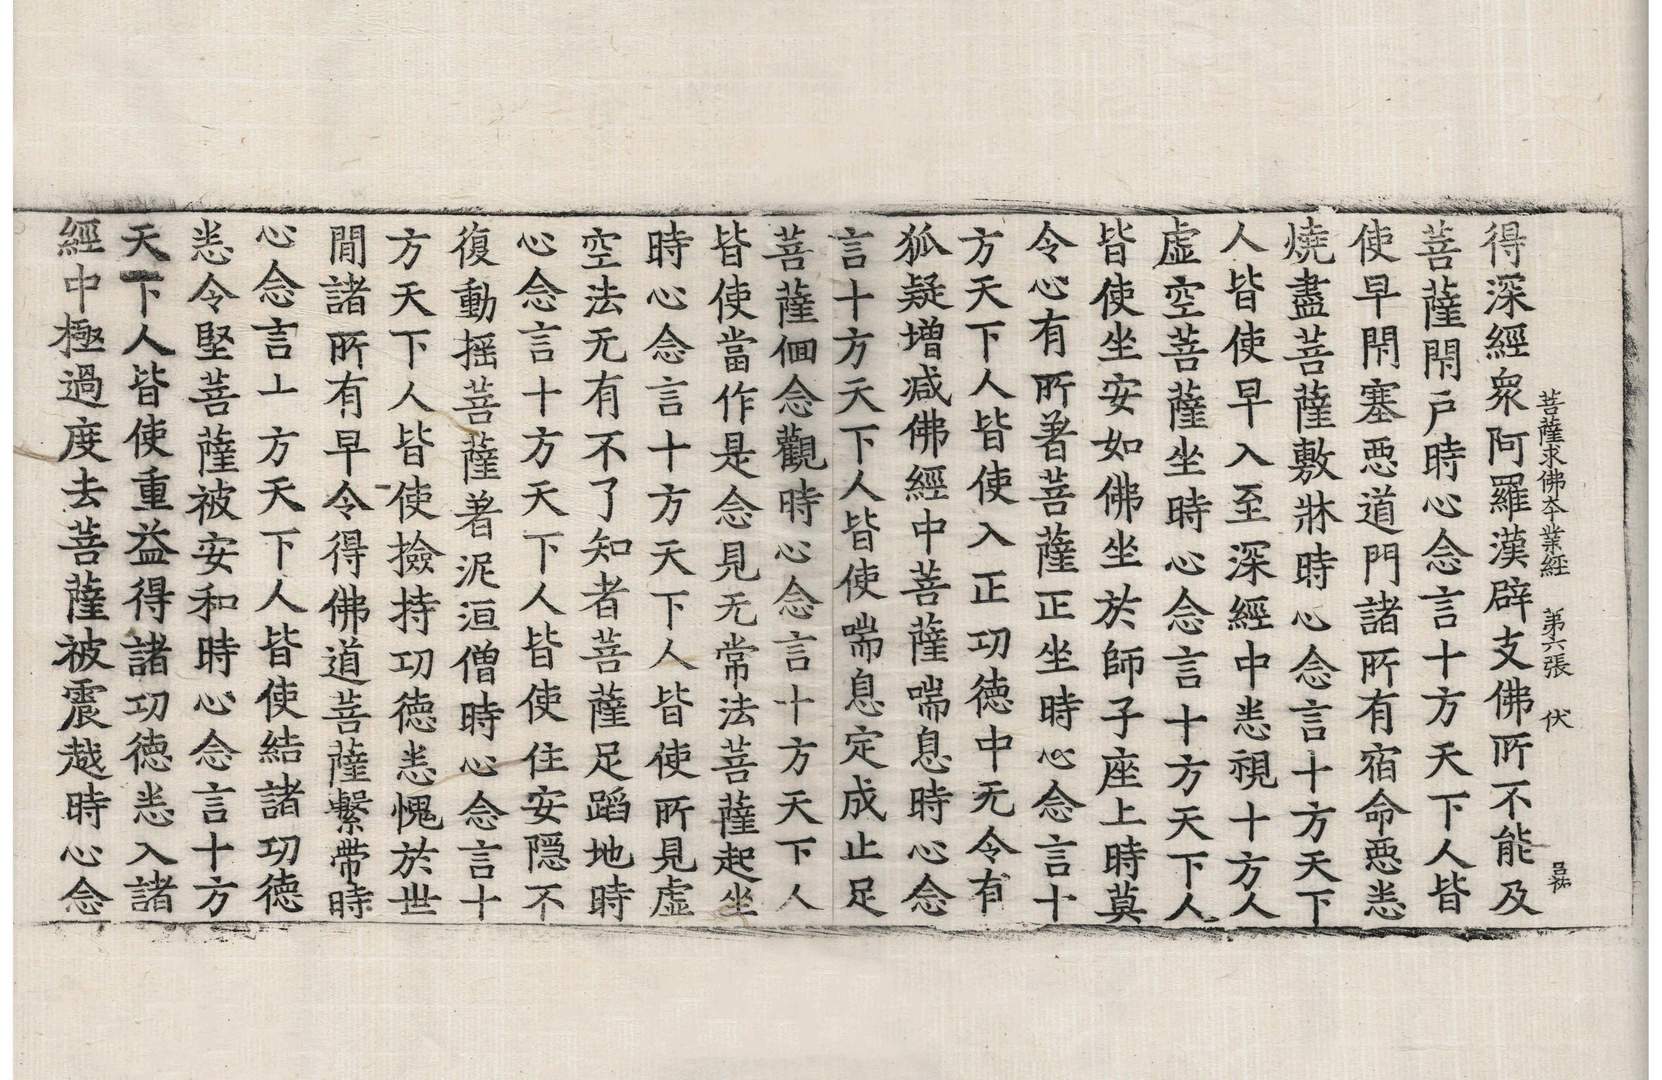 菩薩求佛本業經 第六張 伏
得深經衆阿羅漢辟支佛所不能及
菩薩閇戶時心念言十方天下人皆
使早閇塞惡道門諸所有宿命惡悉
燒盡菩薩敷牀時心念言十方天下
人皆使早入至深經中悉視十方人
虛空菩薩坐時心念言十方天下人
皆使坐安如佛坐於師子座上時莫
令心有所著菩薩正坐時心念言十
方天下人皆使入正功德中无令有
狐疑增减佛經中菩薩喘息時心念
言十方天下人皆使喘息定成止足
菩薩佪念觀時心念言十方天下人
皆使當作是念見无常法菩薩起坐
時心念言十方天下人皆使所見虛
空法无有不了知者菩薩足蹈地時
心念言十方天下人皆使住安隱不
復動搖菩薩著泥洹僧時心念言十
方天下人皆使撿持功德悉愧於世
閒諸所有早令得佛道菩薩繫帶時
心念言十方天下人皆使結諸功德
悉令堅菩薩被安和時心念言十方
天下人皆使重益得諸功德悉入諸
經中極過度去菩薩被震越時心念